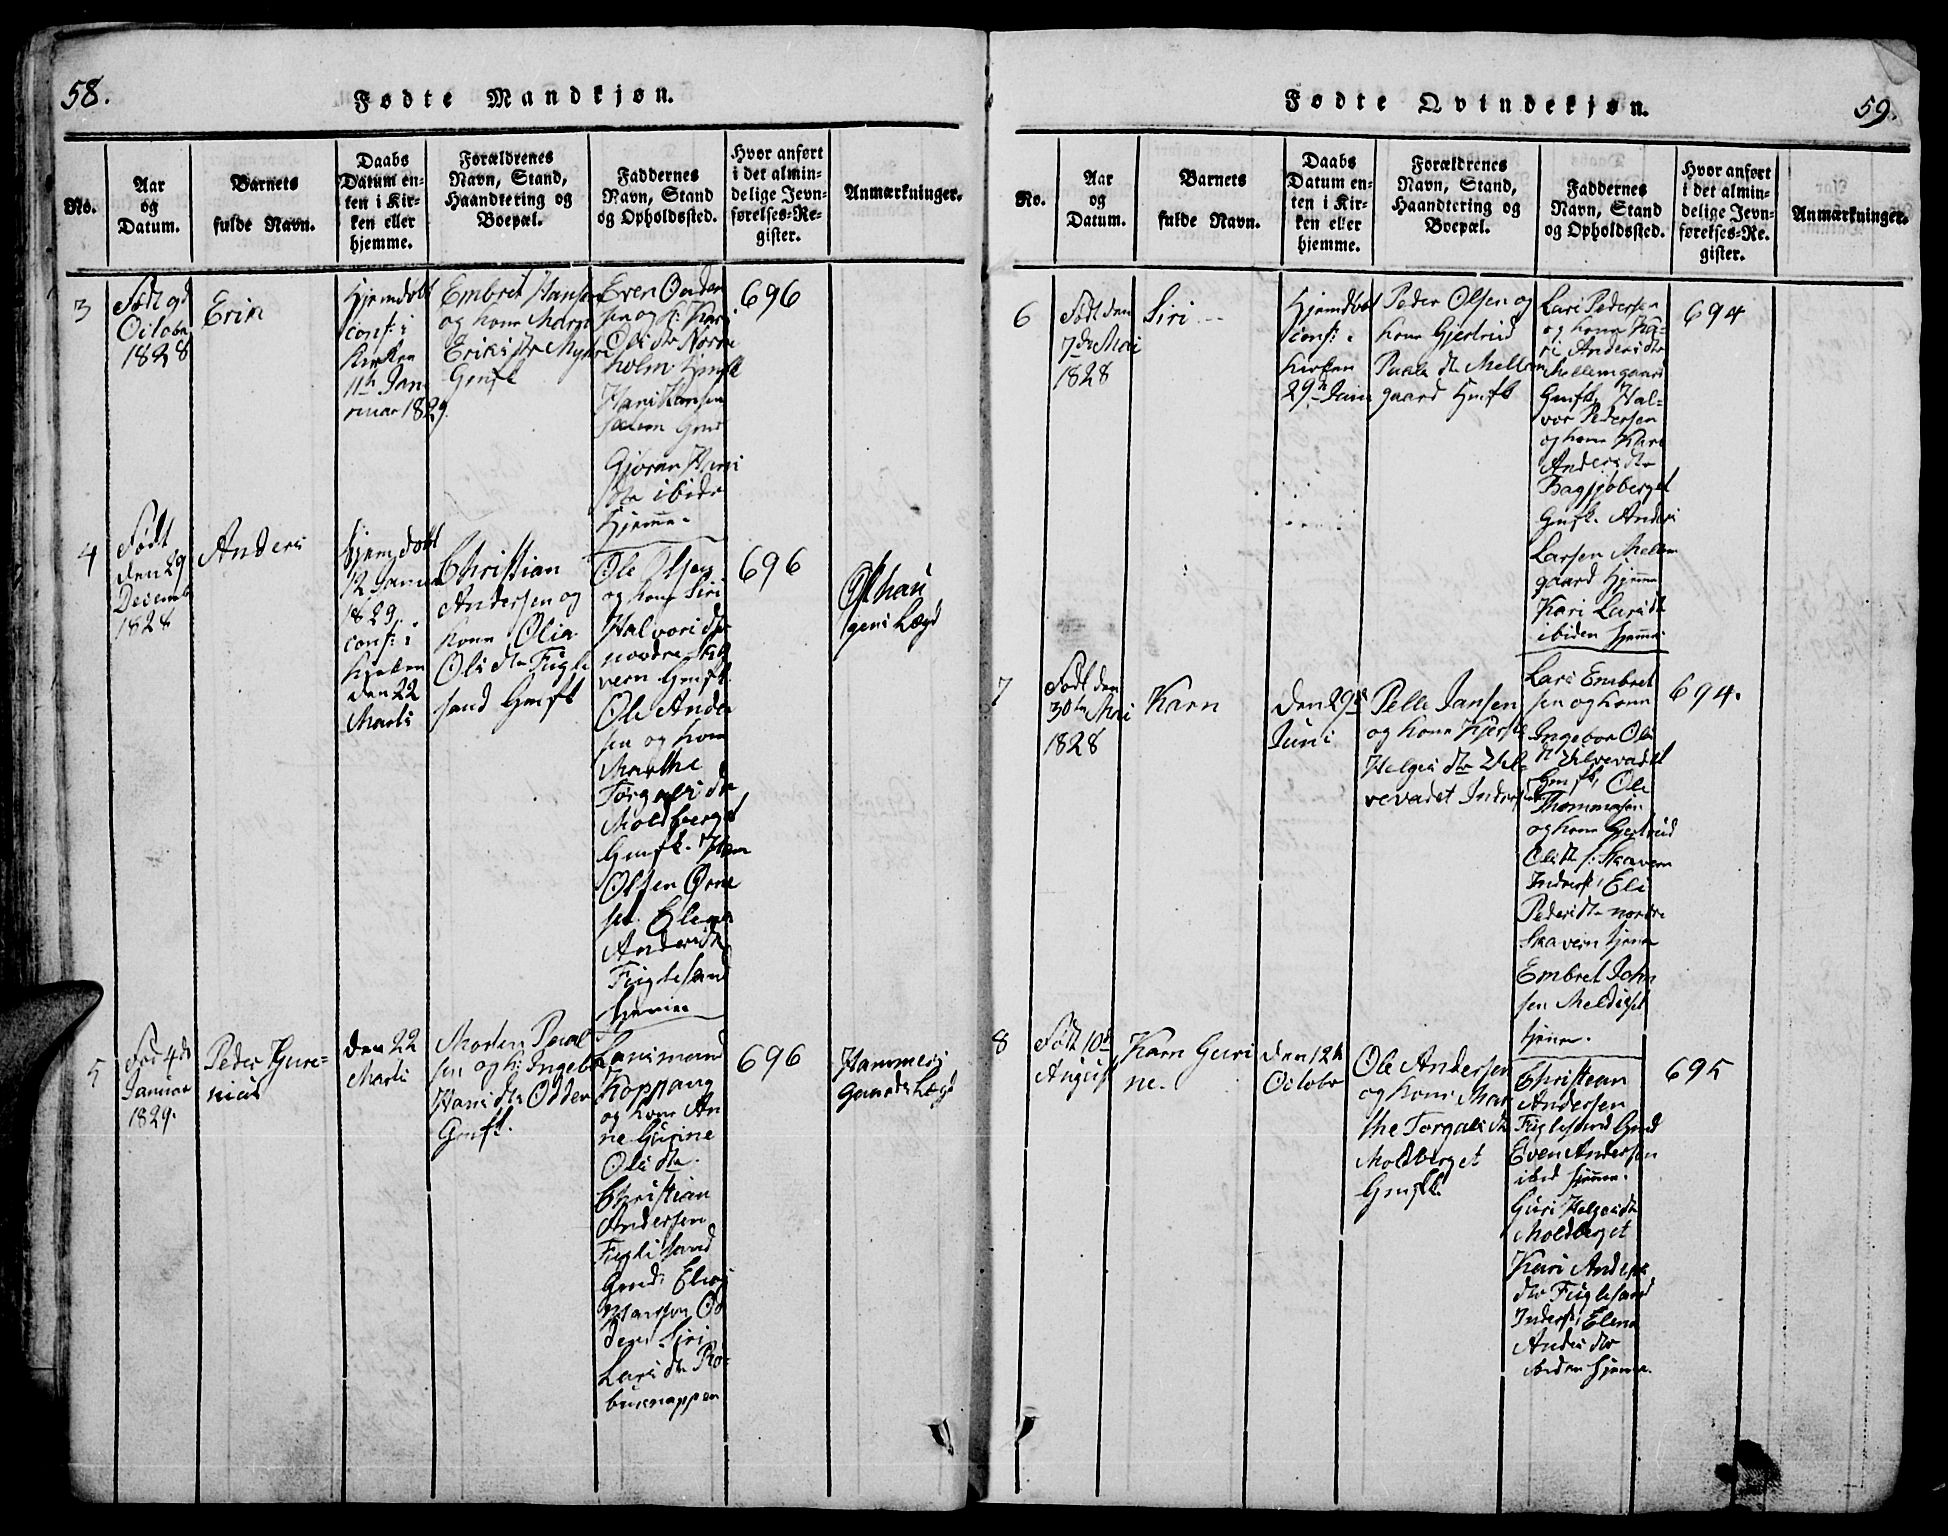 58.
Fødte Mandkjøn.
No.
Aar
og
Datum.
Barnets
fulde Navn.
Daabs
Datum en-
ten i Kir-
ken eller
hjemme.
Forældrenes
Navn, Stand,
Haandtering og
Boepæl.
Faddernes
Navn, Stand
og Opholdssted.
Hvor anført
i det almin-
delige Jevn-
førelses-Re-
gister.
Anmærkninger.
3
Født 9d
Octobr
1828
Erik
Hjemdøbt
conf: i
Kirken
11te Jan
ruar 1829.
Embret Hansen
og kone
Eriksdtr
Gmft
Even
sen og k: Kari
Olsdtr
holm
Hansen
Gmd
Gjøran Hans
dtr ibidn
hjemme.
696
4
Født
den 29
Decemb
1828
Anders
hjemdøbt
12 Janua
1829,
conf: i
Kirken
den 22
Marts
Christian
Andersen og
kone Olia
Olsdtr Fugle
sand Gmft
Ole Olsen
og kone Siri
Halvorsdtr
nordre
vern Gmft.
Ole Ander
sen og kone
Marthe
Torgalsdtr
Moldberget
Gmfk.
Olsen
set. Elen
Andersdtr
Fuglesand
hjemme
696
gens Lægd
5
Fød 4de
Januar
1829.
Peder
den 22
Marts
Morten Paal
sen og k: Ingebor
Hansdtr Odden
Gmft.
Lansmand
Koppang
og kone An
ne Gurine
Olsdtr.
Christian
Andersen
Fuglesand
Gmd:
Od
den. Siri
Larsdtr
696
Lægd
Fødte Qvindekjøn.
59.
No.
Aar
og
Datum.
Barnets
fulde Navn.
Daabs
Datum en-
ten i Kir-
ken eller
hjemme.
Forældrenes
Navn, Stand,
Haandtering og
Boepæl.
Faddernes
Navn, Stand
og Opholdssted.
Hvor anført
i det almin-
delige Jevn-
førelses-Re-
gister.
Anmærkninger.
6
Født den
7de Mai
1828
Siri
Hjemdøbt
conf: i
Kirken
29de Juni
Peder Olsen og
kone Gjertrud
Paalsdtr Mellem
gaard Gmfk
Lars Pedersen
og kone Ka-
ri Andersdtr
Mellemgaard
Gmfk, Hal-
vor Pedersen
og kone Kari
Andersdtr
Gmfk. Anders
Larsen Mellem
gaard hjemme
Kari Larsdtr
ibiden hjemme.
694
7
Født den
30te Mai
1828
Karn
Den 29de
Juni
Pelle Jansen
og kone Kjersti
Helgesdtr
vevadet
Lars Embret
sen og kone
Ingebor Ols
dtr
Gmfk, Ole
Thommesen
og kone Gjertrud
Olsdtr s: Skavern
Inderst, Eli
Pedersdtr nordre
Skavern hjeme
Embret John
sen
hjeme.
694.
8
Født 10de
August
Karn Guri
ne.
Den 12te
Octobr
Ole Andersen
og kone Mar
the Torgalsdtr
Moldberget
Gmfk.
Christian
Andersen
Fuglesand Gmd
Even Andersen
ibid hjemme.
Guri Helgesdtr
Moldberget
Kari Anders
dtr Fuglesand
Inderst, Elena
Andersdtr
ibiden hjemme.
695